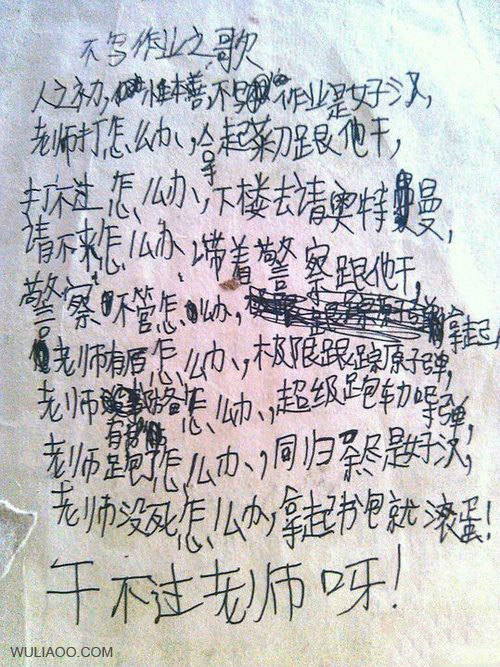 不写作业之歌
人之初,性本善,不写作业是好汉,
老师打怎么办,拿起菜刀跟他干,
打不过怎么办,下楼去请奥特曼,
请不来怎么办,带着警察跟他干,
警察不管怎么办,拿起
老师有盾怎么办,极限跟踪原子弹,
老师怎么办,超级跑车加导弹,
老师跑了怎么办,同归于尽是好汉,
老师没死怎么办,拿起书包就滚蛋!
干不过老师呀!
WULIAOO.COM